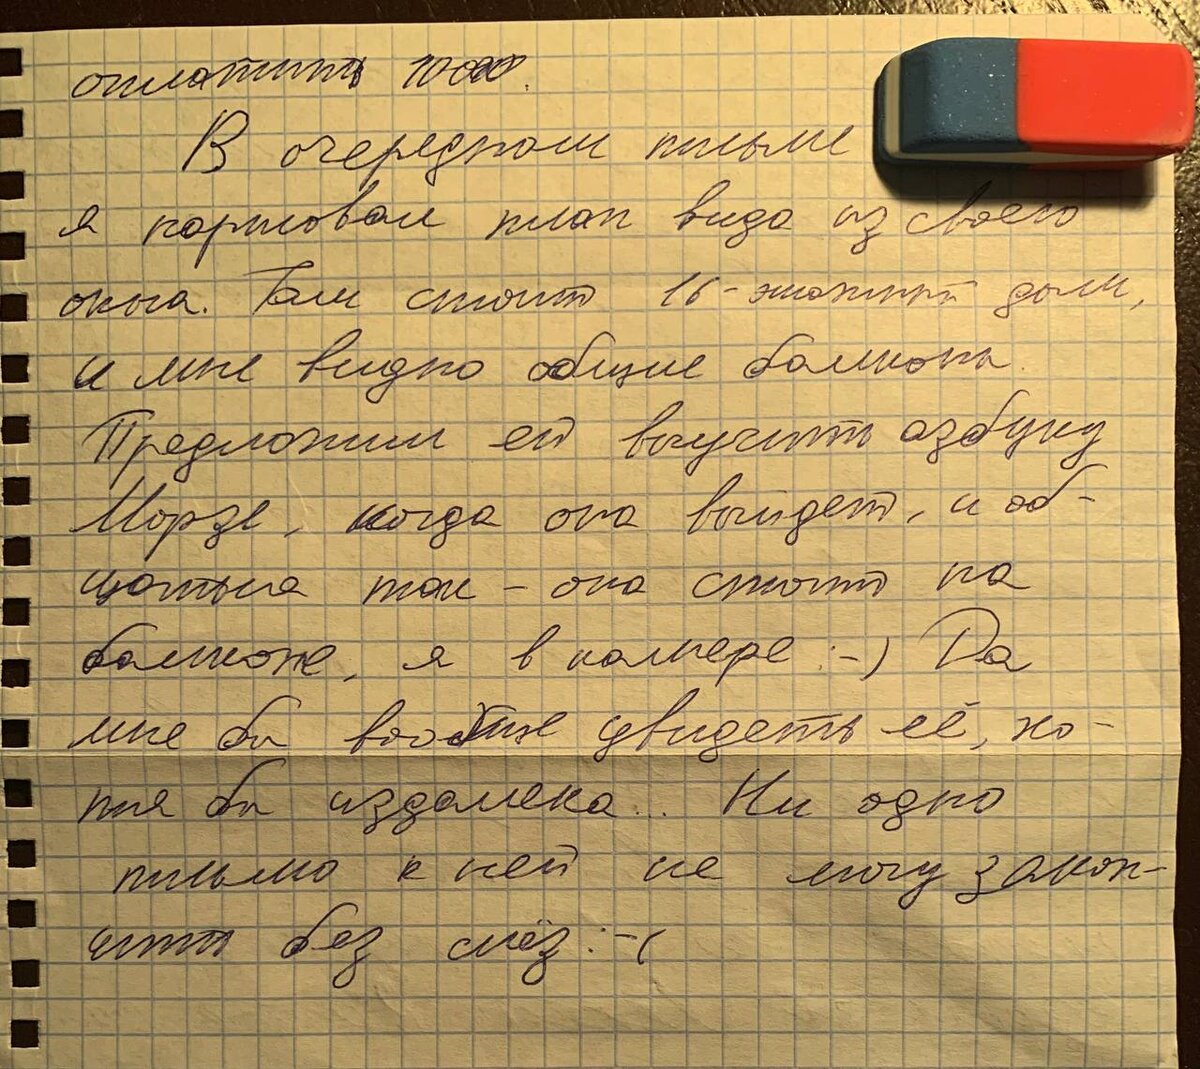 оплатить 1000.
В очередном письме
я нарисовал план вида из своего
окна. Там стоит 16-этажный дом,
и мне видно общие балконы.
Предложил ей выучить азбуку
Морзе, когда она выйдет, и об-
щаться так – она стоит на
балконе, я в камере :-) Да
мне бы вообще увидеть её, хо-
тя бы издалека... Ни одно
письмо к ней не могу закон-
чить без слёз :-(